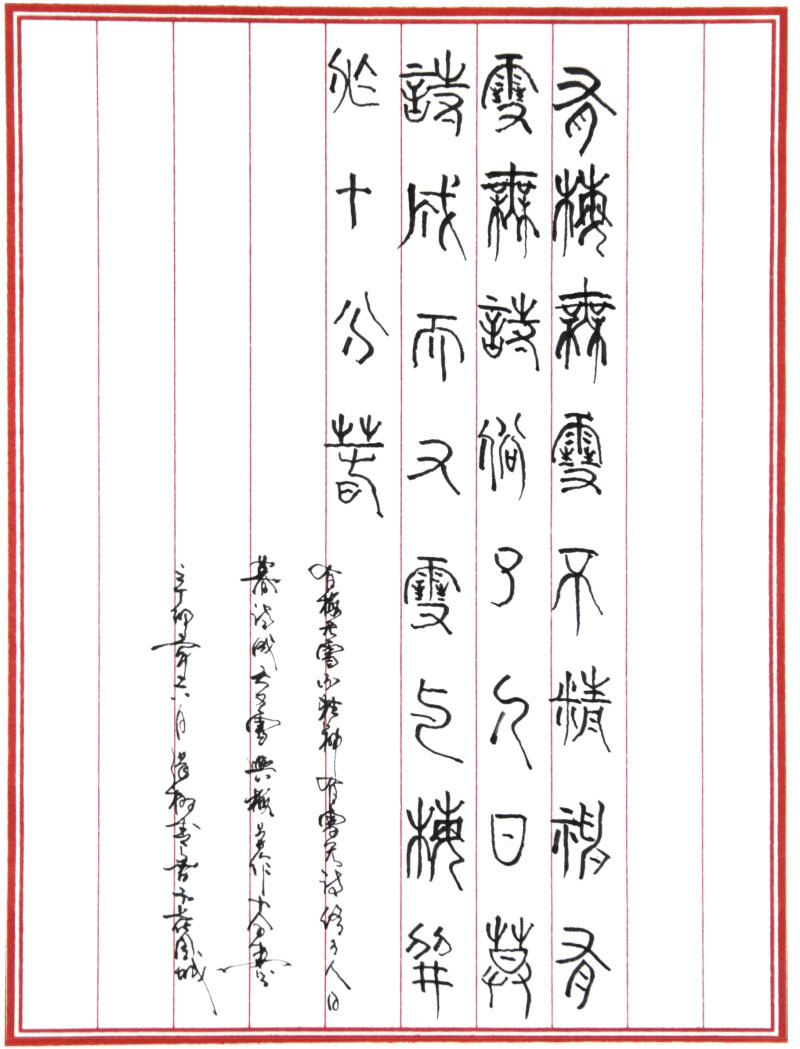 有梅無雪不精神有
雪無詩俗了人日暮
詩成天又雪与梅並
作十分春
有梅无雪不精神有雪无詩俗了人日
暮詩成天又雪與梅並作十分春
辛卯年六月